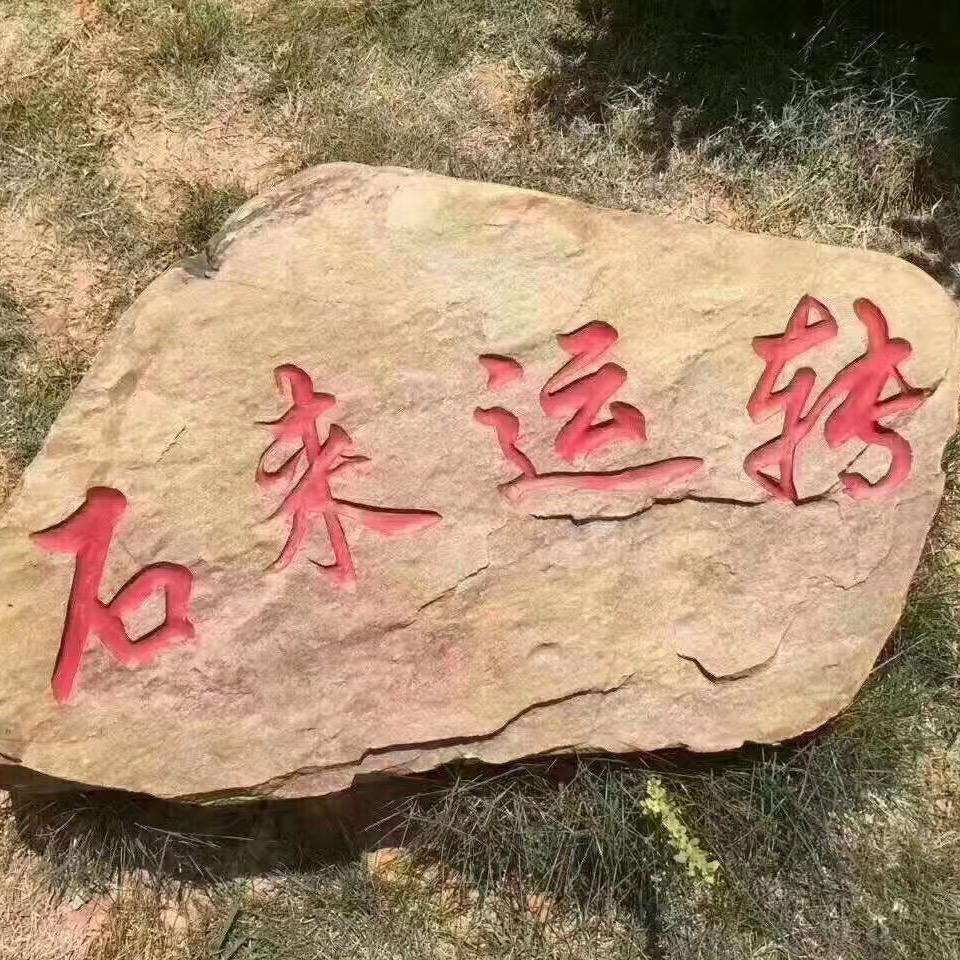 石来运转